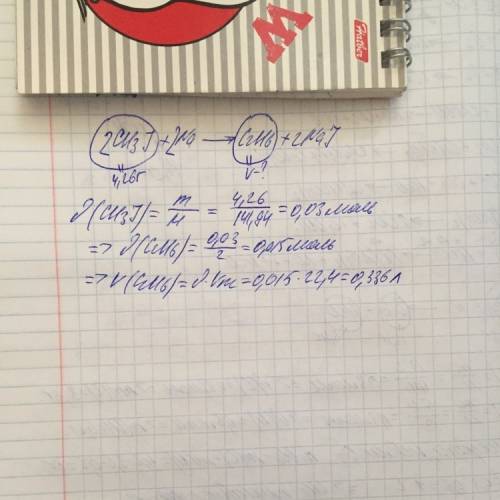 W
Hatber
2CH3J + 2Na → C2H6 + 2NaJ
4,26г V-?
ν(CH3J) = m/M = 4,26/141,94 = 0,03 моль
=> ν(C2H6) = 0,03/2 = 0,015 моль
=> V(C2H6) = ν·Vm = 0,015·22,4 = 0,336 л